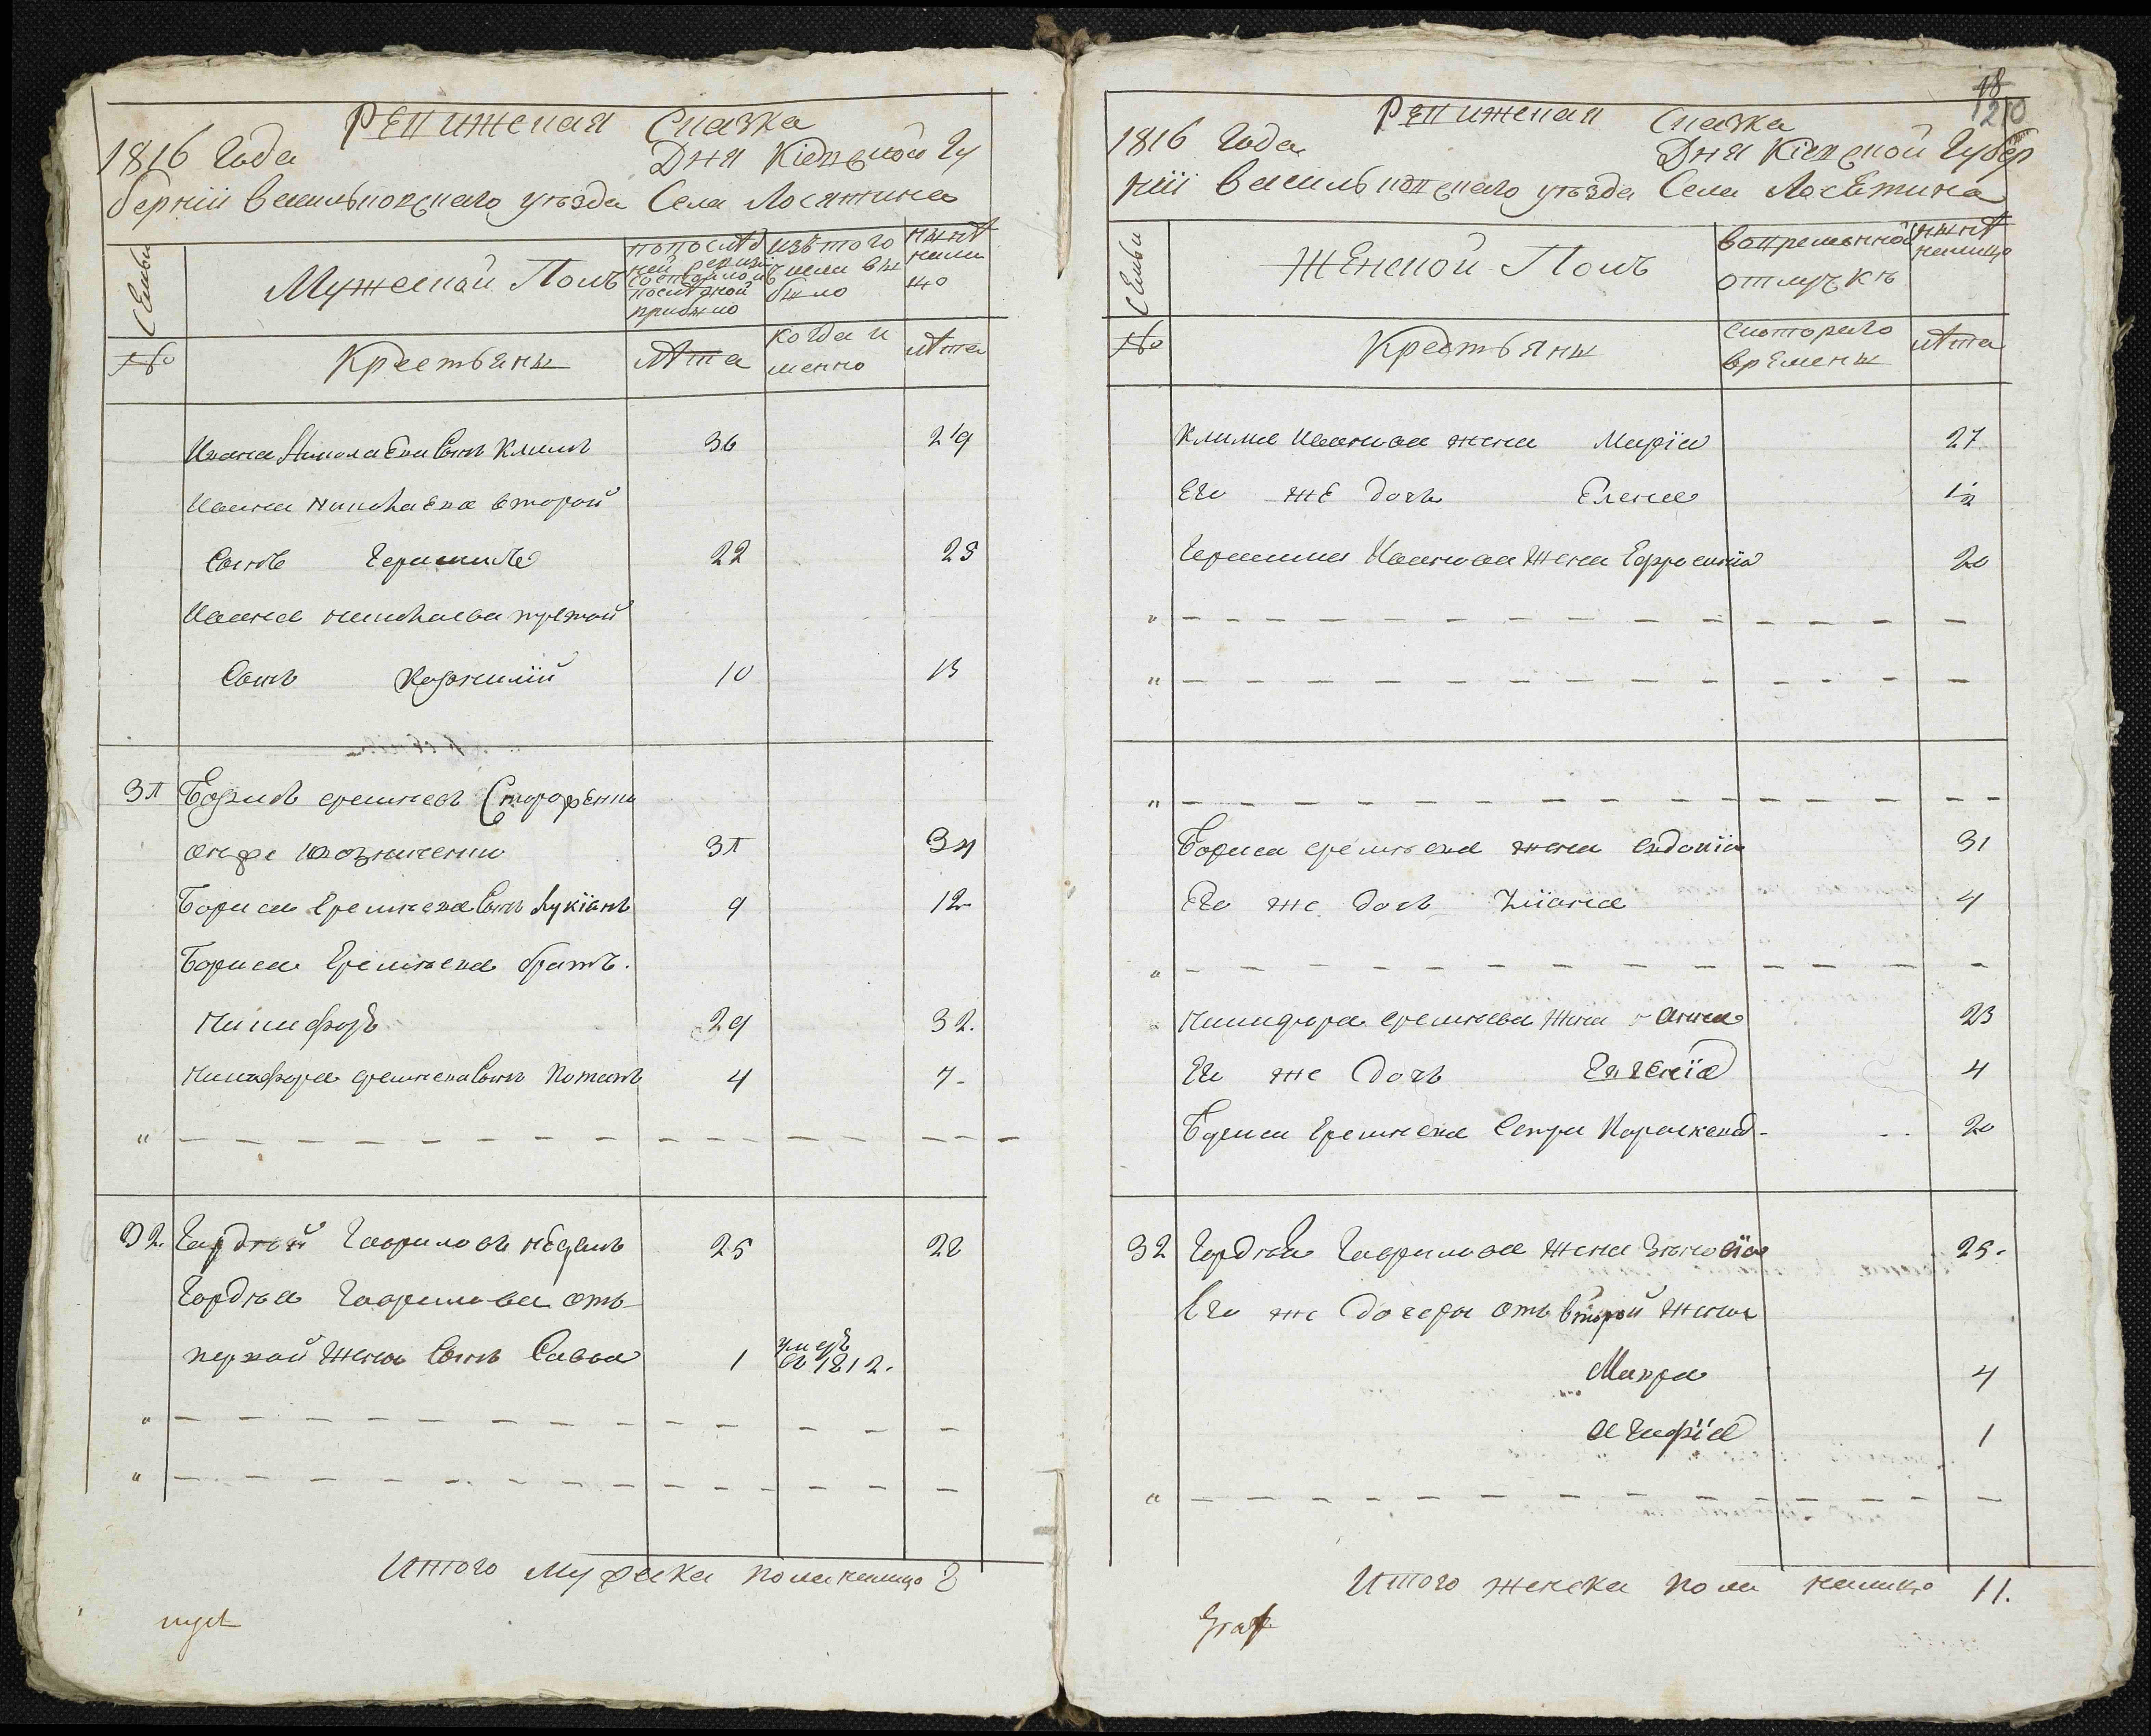 Ревижская Сказка
1816 Года Дня Кіевской Гу
берніи васильковскаго уѣзда Села Лосятина
Семьи
Мужеской Полъ
попослѣд
ней ревизіи
состояло и
послѣ оной
прибыло
изътого
числа вы
было
нынѣ
нали
цо
№
Крестьяны
лѣта
когда и
менно
лѣта
Ивана Николаева Сынъ Климъ 36 219
Ивана николаева второй
Сынъ Герасимъ 22 25
Ивана николаева третой
Сынъ Корнилій 10 13
31 Борисъ еремѣевъ Сторофенко
онже 31 34
Бориса Еремѣева Сынъ Лукіанъ 9 12
Бориса Еремѣева братъ.
Никифоръ 29 32.
Никифора еремѣева Сынъ Потапъ 4 7.
" — — — — — — — — — — — —
32. Гордѣй Гавриловъ 25 28
Гордѣя Гаврилова отъ
первой жены Сынъ Савва 1 умеръ
въ 1812.
" — — — — — — — — — — — —
" — — — — — — — — — — — —
Итого мужска пола налицо 8
18
210
Ревижская Сказка
1816 Года Дня Кіевской Губер
ніи васильковскаго уѣзда Села Лосятина
Семьи
Женской Полъ
вовременной
отлучкѣ
нынѣ
налицо
№
Крестьяны
скоторого
времени
лѣта
Клима Иванова жена Марія 27.
Его же дочь Елена 1/2
Герасима Иванова жена Ефросинія 20
" — — — — — — — — — — — —
" — — — — — — — — — — — —
" — — — — — — — — — — — —
Бориса еремѣева жена евдокія 31
Его же дочь Уліана 4
" — — — — — — — — — — — —
Никифора еремѣева жена Анна 23
Его же Дочь Евгенія 4
Бориса Еремѣева Сестра Параскева 20
32 Гордѣя Гаврилова жена Зиновія 25.
Его же дочери отъ второй жены
Мавра 4
Агафія 1
" — — — — — — — — — — — —
Итого женска пола налицо 11.
Graf